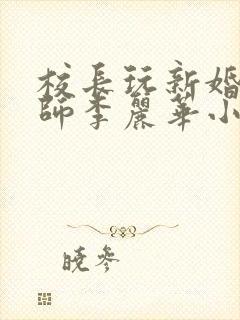 校長玩新婚
師李麗華小
曉參